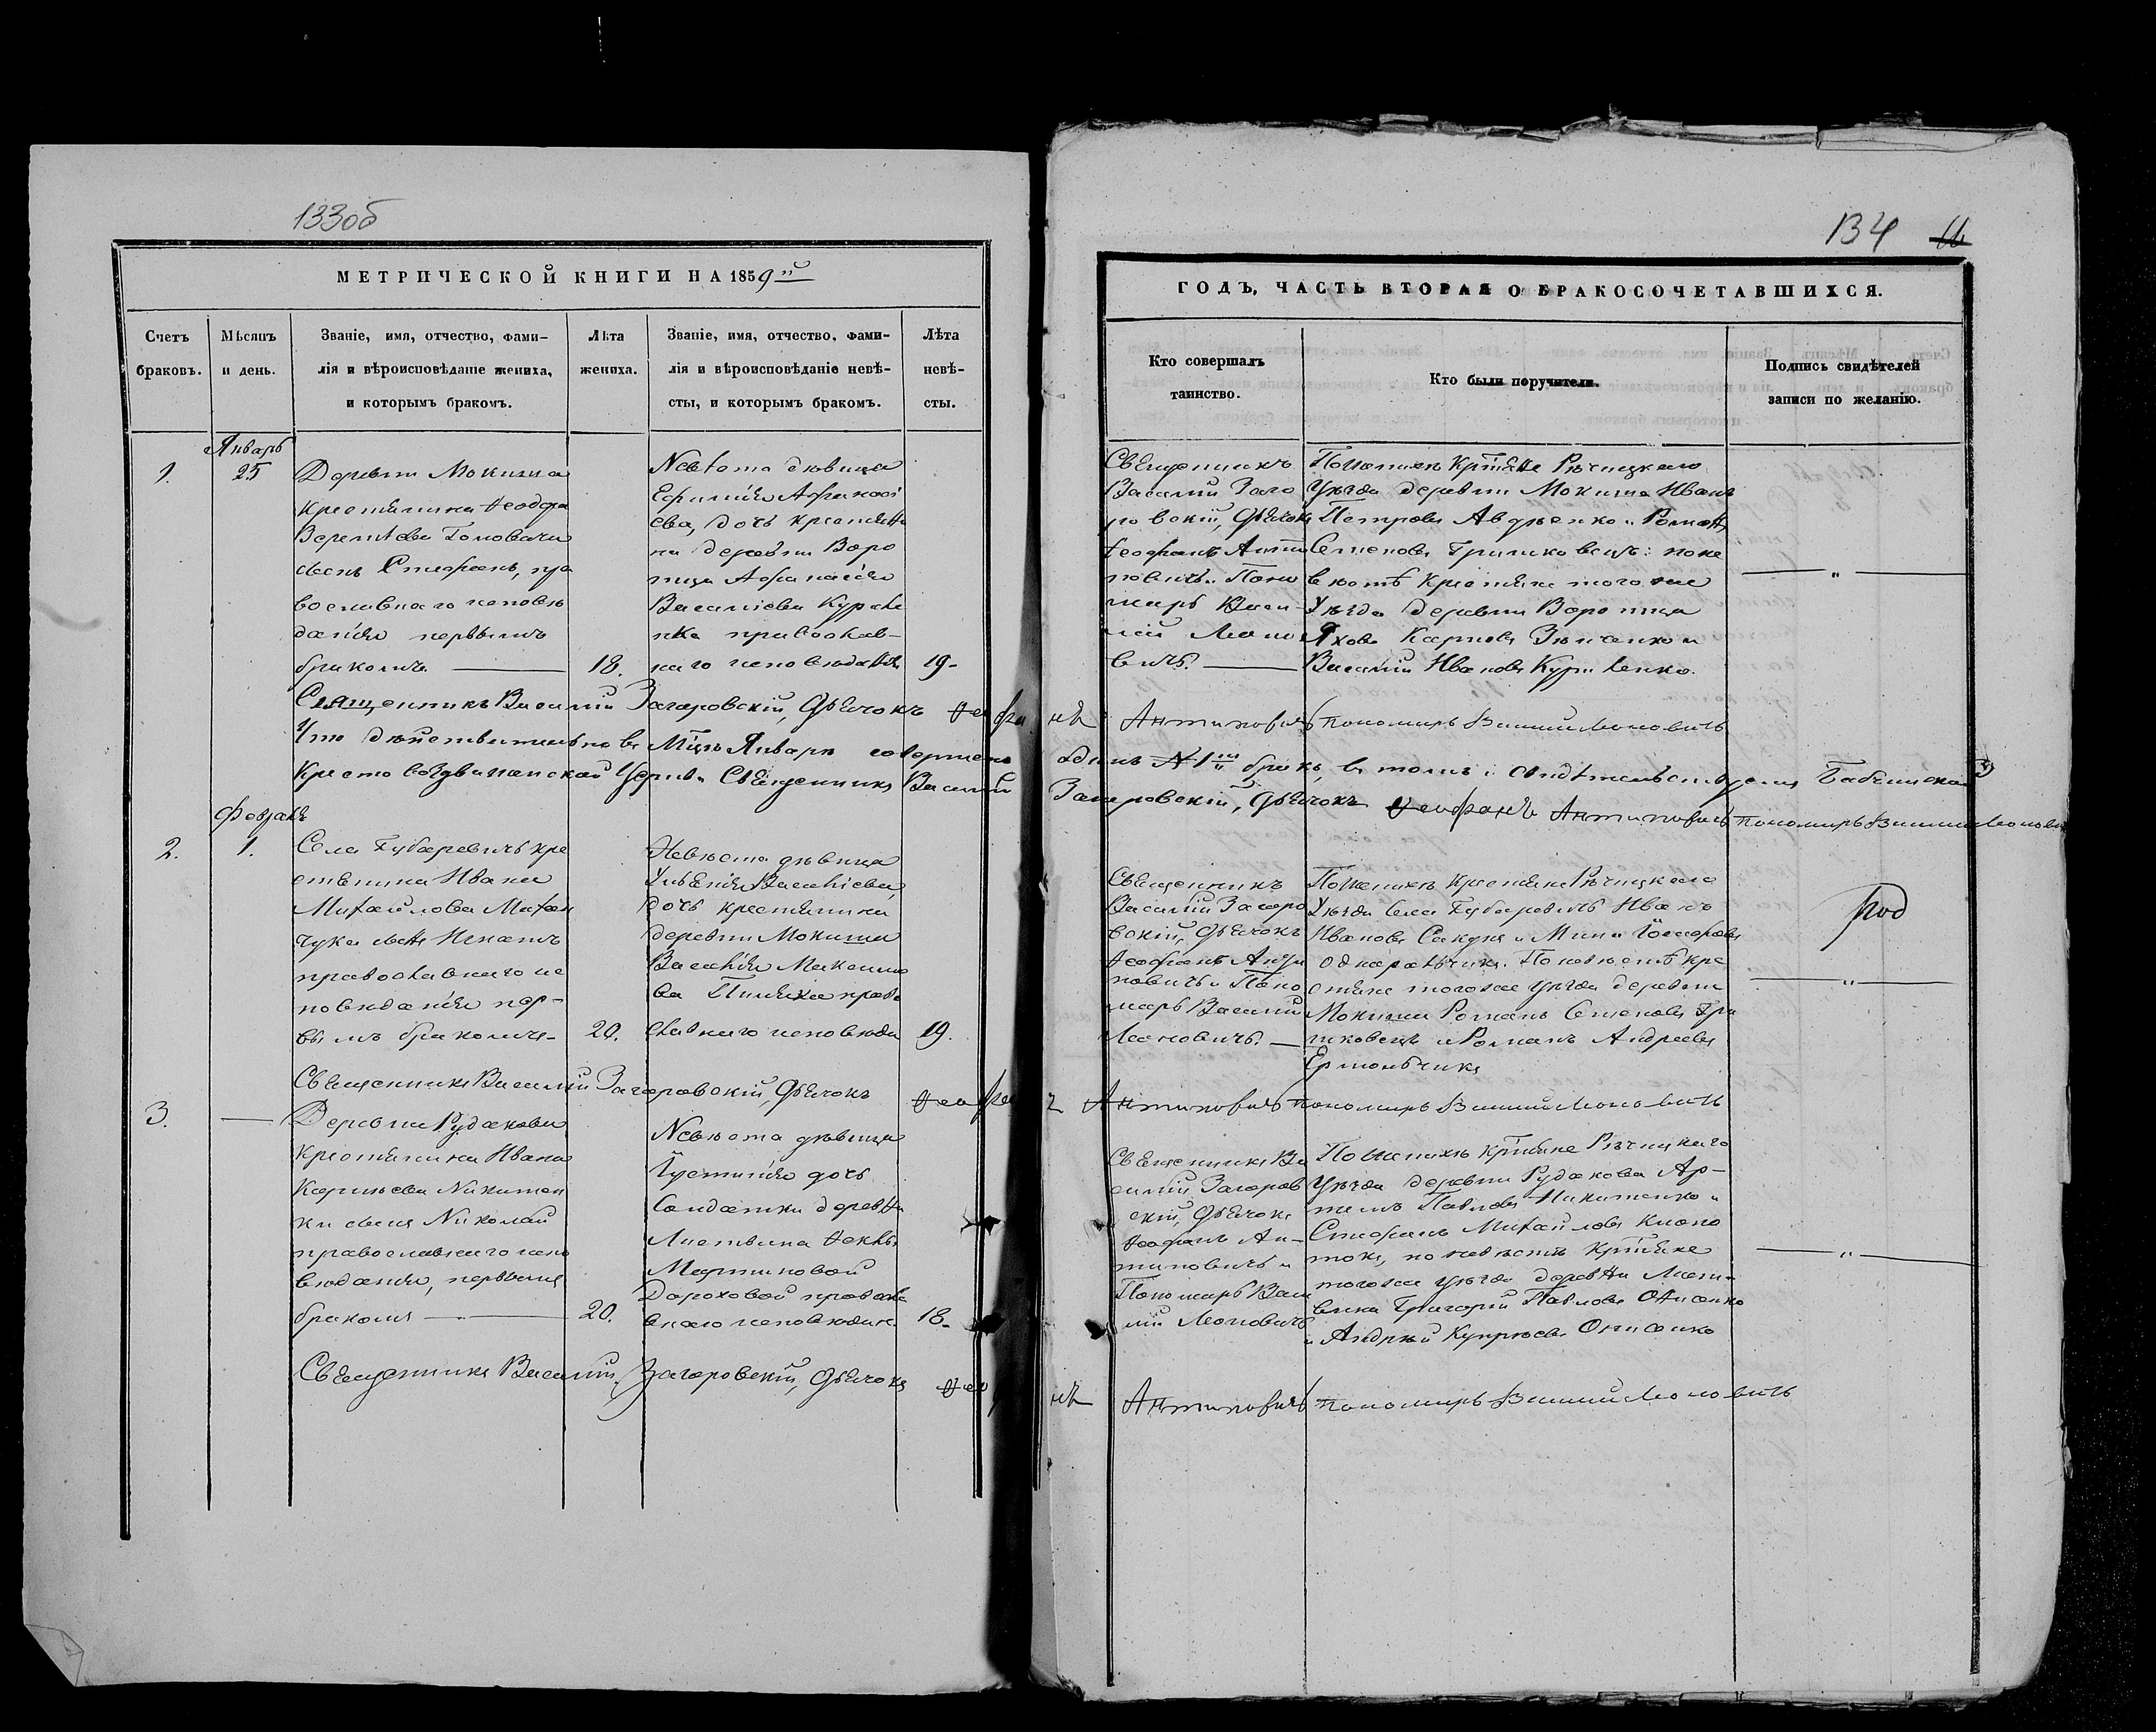 133об
МЕТРИЧЕСКОЙ КНИГИ НА 1859й
Счетъ браковъ.
Мѣсяцъ и день.
Званіе, имя, отчество, фами-
лія и вѣроисповѣданіе жениха,
и которымъ бракомъ.
Лѣта жениха.
Званіе, имя, отчество, фами-
лія и вѣроисповѣданіе невѣ-
сты, и которымъ бракомъ.
Лѣта невѣ-
сты.
Январь
1.
25
Деревни Мокиша
крестьянина Ѳеодора
Головачи
сынъ Стефанъ, пра
вославнаго исповѣ
данія первымъ
бракомъ.
18.
Невѣста дѣвица
Ефимія Афанасі
ева, дочь крестьяни
на деревни Воро
тца Афанасія
Василіева Курле
нка православ-
наго исповѣданія
19-
Священникъ Василій Загоровскій, Дьячокъ Ѳеофа
Что дѣйствительно въ Мцѣ Январѣ совершенъ
Кресто воздвиженской Церкви Священникъ Василій
Февраль
2.
1.
Села Губаревичъ кре
стьянина Ивана
Михайлова Михал
чука сынъ Игнатъ
православнаго ис
повѣданія пер-
вымъ бракомъ-
20.
Невѣста дѣвица
Василіева,
дочь крестьянина
деревни Мокиши
Василія Максимо
ва православ
славнаго исповѣда
19.
Священникъ Василій Загоровскій, Дьячокъ Ѳеофа
3.
Деревни Рудакова
крестьянина Ивана
Карпѣева Никитен
ки сынъ Николай
православнаго испо
вѣданія, первымъ
бракомъ
20.
Невѣста дѣвица
Іустинія дочь
Солдатки деревни
Листвина Ѳеклы
Мартиновой
Дороховой правосла
внаго исповѣдан.
18-
Священникъ Василій Загоровскій, Дьячокъ Ѳео
134
ГОДЪ, ЧАСТЬ ВТОРАЯ О БРАКОСОЧЕТАВШИХСЯ.
Кто совершалъ
таинство.
Кто были поручители.
Подпись свидѣтелей
записи по желанію.
Священникъ
Василій Заго
ровскій, Дьячокъ
Ѳеофанъ Анти
повичъ и Поно
марь Васи-
лій Леоно
вичъ.
По женихѣ крестьяне Рѣчицкаго
Уѣзда деревни Мокиша Иванъ
Петровъ Авдѣенко и Романъ
Семеновъ Гришковецъ: по не
вѣстѣ крестьяне того же
Уѣзда деревни Воротца
Яковъ Карповъ Зѣненко и
Василій Ивановъ Курленко.
нъ Антиповичъ пономарь Василій Леоновичъ
одинъ №1й бракъ, въ томъ и свидѣтельствуемъ Бабчинской
Загоровскій, Дьячокъ Ѳеофанъ Антиповичъ пономарь Василій Леонович
Священникъ
Василій Загоро
вскій, Дьячокъ
Ѳеофанъ Анти
повичъ и Поно
марь Василій
Леоновичъ.
По женихѣ крестьяне Рѣчицкаго
Уѣзда Села Губаревичъ Иванъ
Ивановъ Сакунъ и Мина
По невѣстѣ кре
стьяне того же Уѣзда деревни
Мокиши Романъ Семеновъ Гри
шковецъ и Романъ Андреевъ
Ермольчикъ
нъ Антиповичъ пономарь Василій Леоновичъ
Священникъ Ва
силій Загоров
скій, Дьячокъ
Ѳеофанъ Ан-
типовичъ и
Пономарь Васи
лій Леоновичъ
По женихѣ крестьяне Рѣчицкаго
Уѣзда деревни Рудакова Ар-
темъ Павловъ Никитенко и
Стефанъ Михайловъ
по невѣстѣ крестьяне
того же уѣзда деревни Лист-
вина Григорій Павловъ Онисенко
и Андрей Купрѣевъ Онисенко
нъ Антиповичъ пономарь Василій Леоновичъ